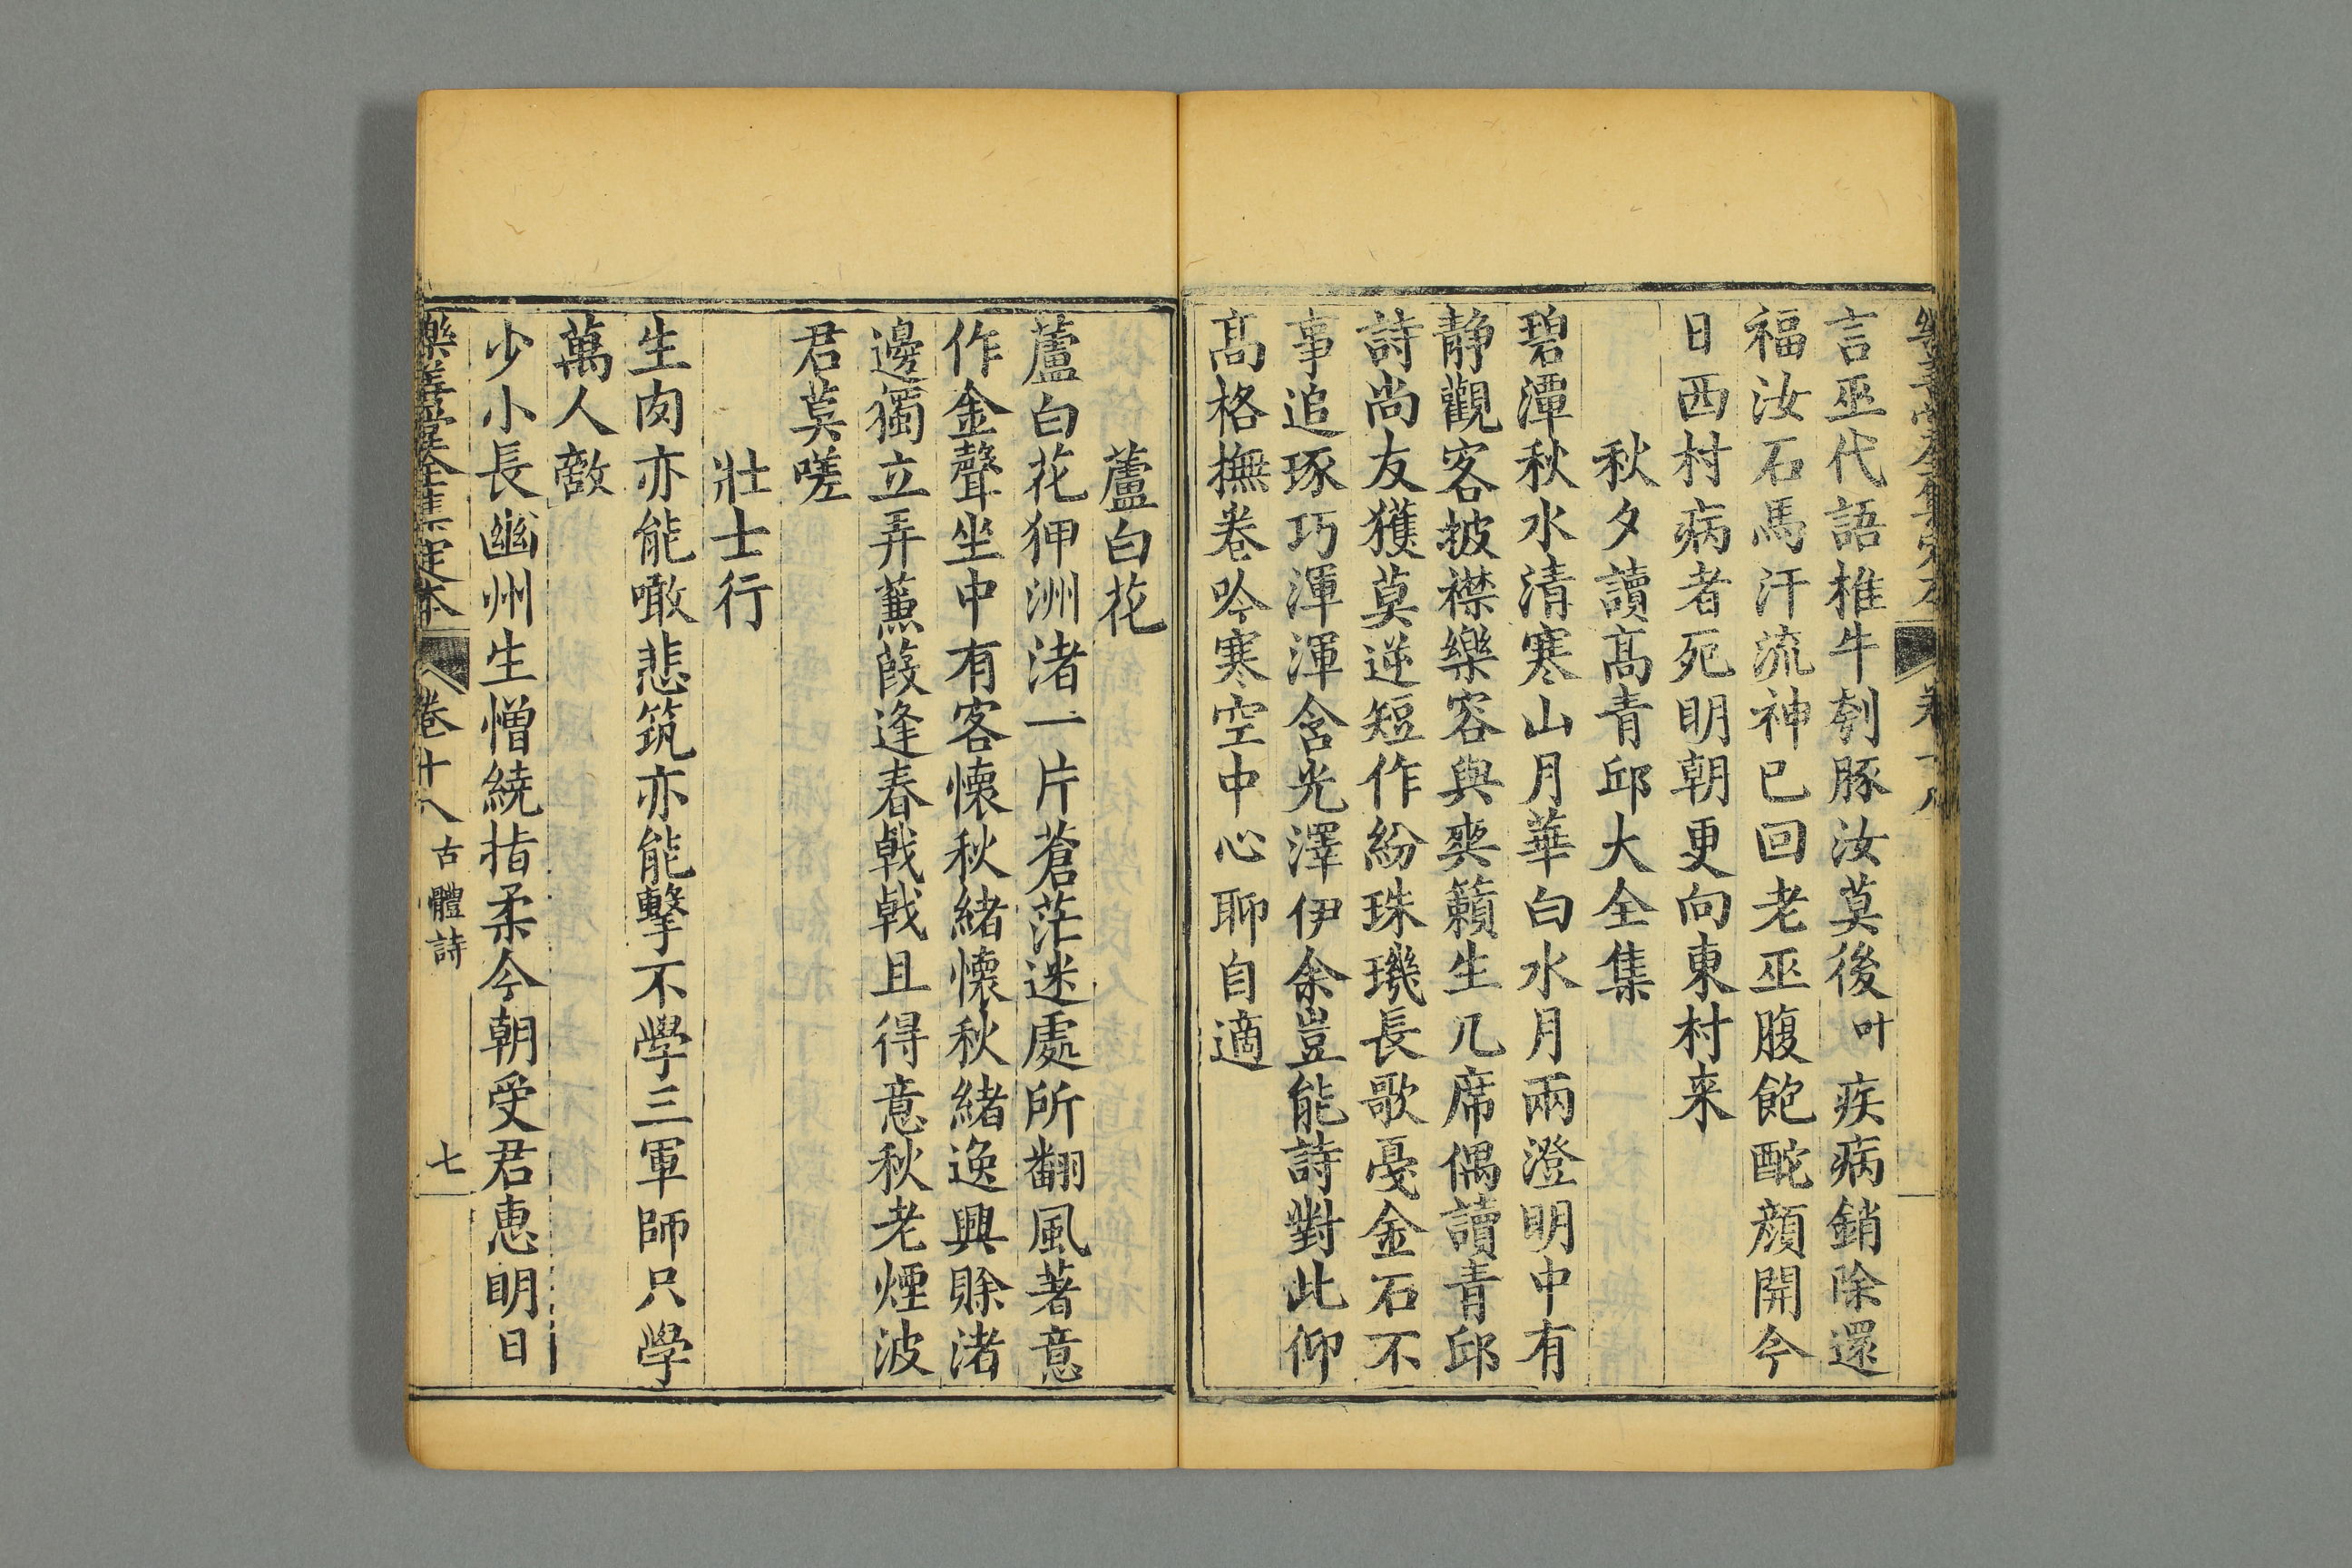 言巫代語椎牛刳豚汝莫後叶疾病銷除還
福汝石馬汗流神已回老巫腹飽酡顏開今
日西村病者死明朝更向東村来
秋夕讀髙青邱大全集
碧潭秋水清寒山月華白水月兩澄明中有
静觀客披襟樂容與爽籟生几席偶讀青邱
詩尚友獲莫逆短作紛珠璣長歌戞金石不
事追琢巧渾渾含光澤伊余豈能詩對此仰
髙格撫卷吟寒空中心聊自適
蘆白花
蘆白花狎洲渚一片蒼茫迷處所翻風著意
作金聲坐中有客懷秋緒懷秋緒逸興賒渚
邊獨立弄蒹葭逢春戟戟且得意秋老煙波
君莫嗟
壯士行
生肉亦能噉悲筑亦能擊不學三軍師只學
萬人敵
少小長幽州生憎繞指柔今朝受君惠明日
樂善堂全集定本 卷十八 古體詩 七